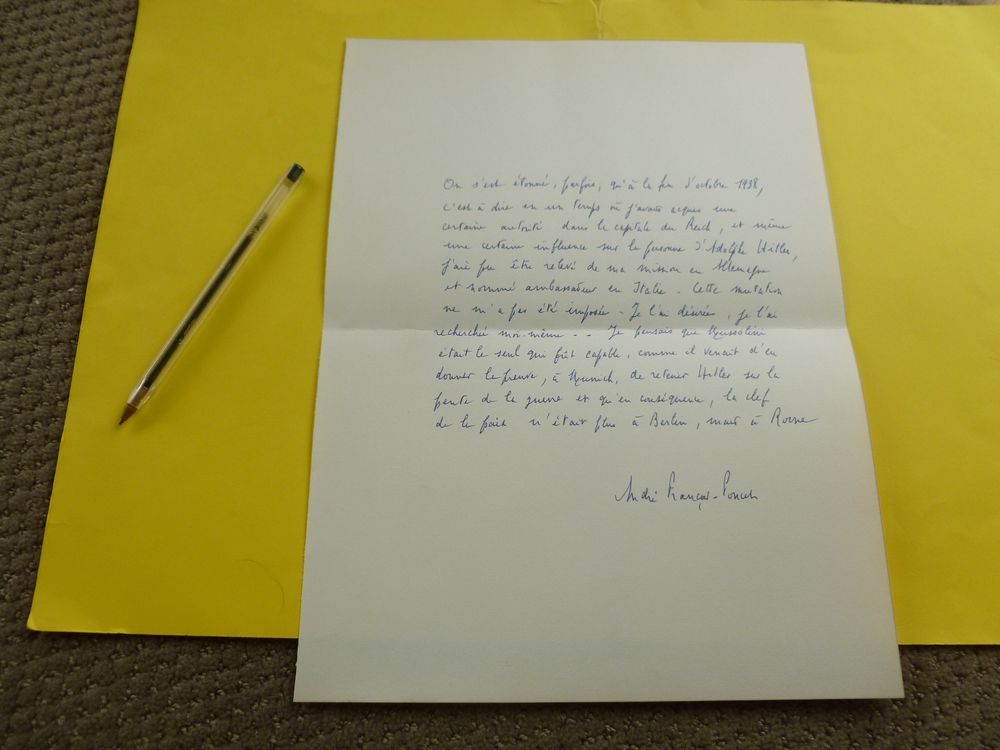 On s'est étonné, parfois, qu'à la fin d'octobre 1938,
c'est à dire en un temps où j'avais acquis une
certaine autorité dans la capitale du Reich, et même
une certaine influence sur la personne d'Adolph Hitler,
j'aie pu être relevé de ma mission en Allemagne
et nommé ambassadeur en Italie. Cette mutation
ne m'a pas été imposée. Je l'ai désirée, je l'ai
recherchée moi-même. - Je pensais que Mussolini
était le seul qui fût capable, comme il venait d'en
donner la preuve, à Munich, de retenir Hitler sur la
pente de la guerre et qu'en conséquence, la clef
de la paix n'était plus à Berlin, mais à Rome
André François-Poncet